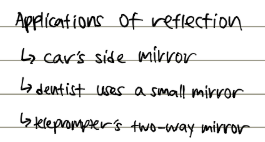 Applications of reflection
↳ car's side mirror
↳ dentist uses a small mirror
↳ teleprompter's two-way mirror